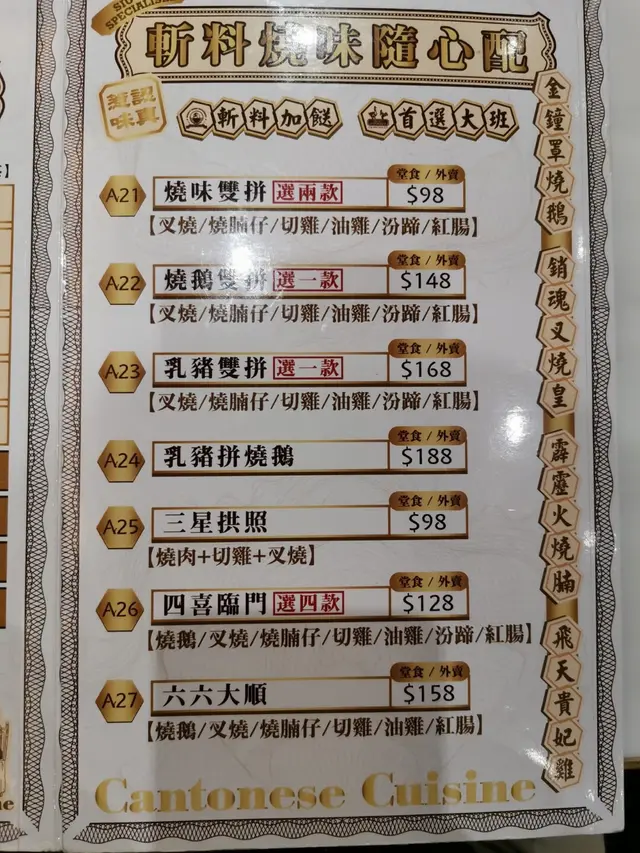 斬料燒味隨心配
認真
滋味
斬料加餸
首選大班
A21 燒味雙拼 選兩款 堂食 / 外賣 $98
【叉燒/燒腩仔/切雞/油雞/汾蹄/紅腸】
A22 燒鵝雙拼 選一款 堂食 / 外賣 $148
【叉燒/燒腩仔/切雞/油雞/汾蹄/紅腸】
A23 乳豬雙拼 選一款 堂食 / 外賣 $168
【叉燒/燒腩仔/切雞/油雞/汾蹄/紅腸】
A24 乳豬拼燒鵝 堂食 / 外賣 $188
A25 三星拱照 堂食 / 外賣 $98
【燒肉+切雞+叉燒】
A26 四喜臨門 選四款 堂食 / 外賣 $128
【燒鵝/叉燒/燒腩仔/切雞/油雞/汾蹄/紅腸】
A27 六六大順 堂食 / 外賣 $158
【燒鵝/叉燒/燒腩仔/切雞/油雞/紅腸】
金鐘罩燒鵝
銷魂叉燒皇
霹靂火燒腩
飛天貴妃雞
Cantonese Cuisine